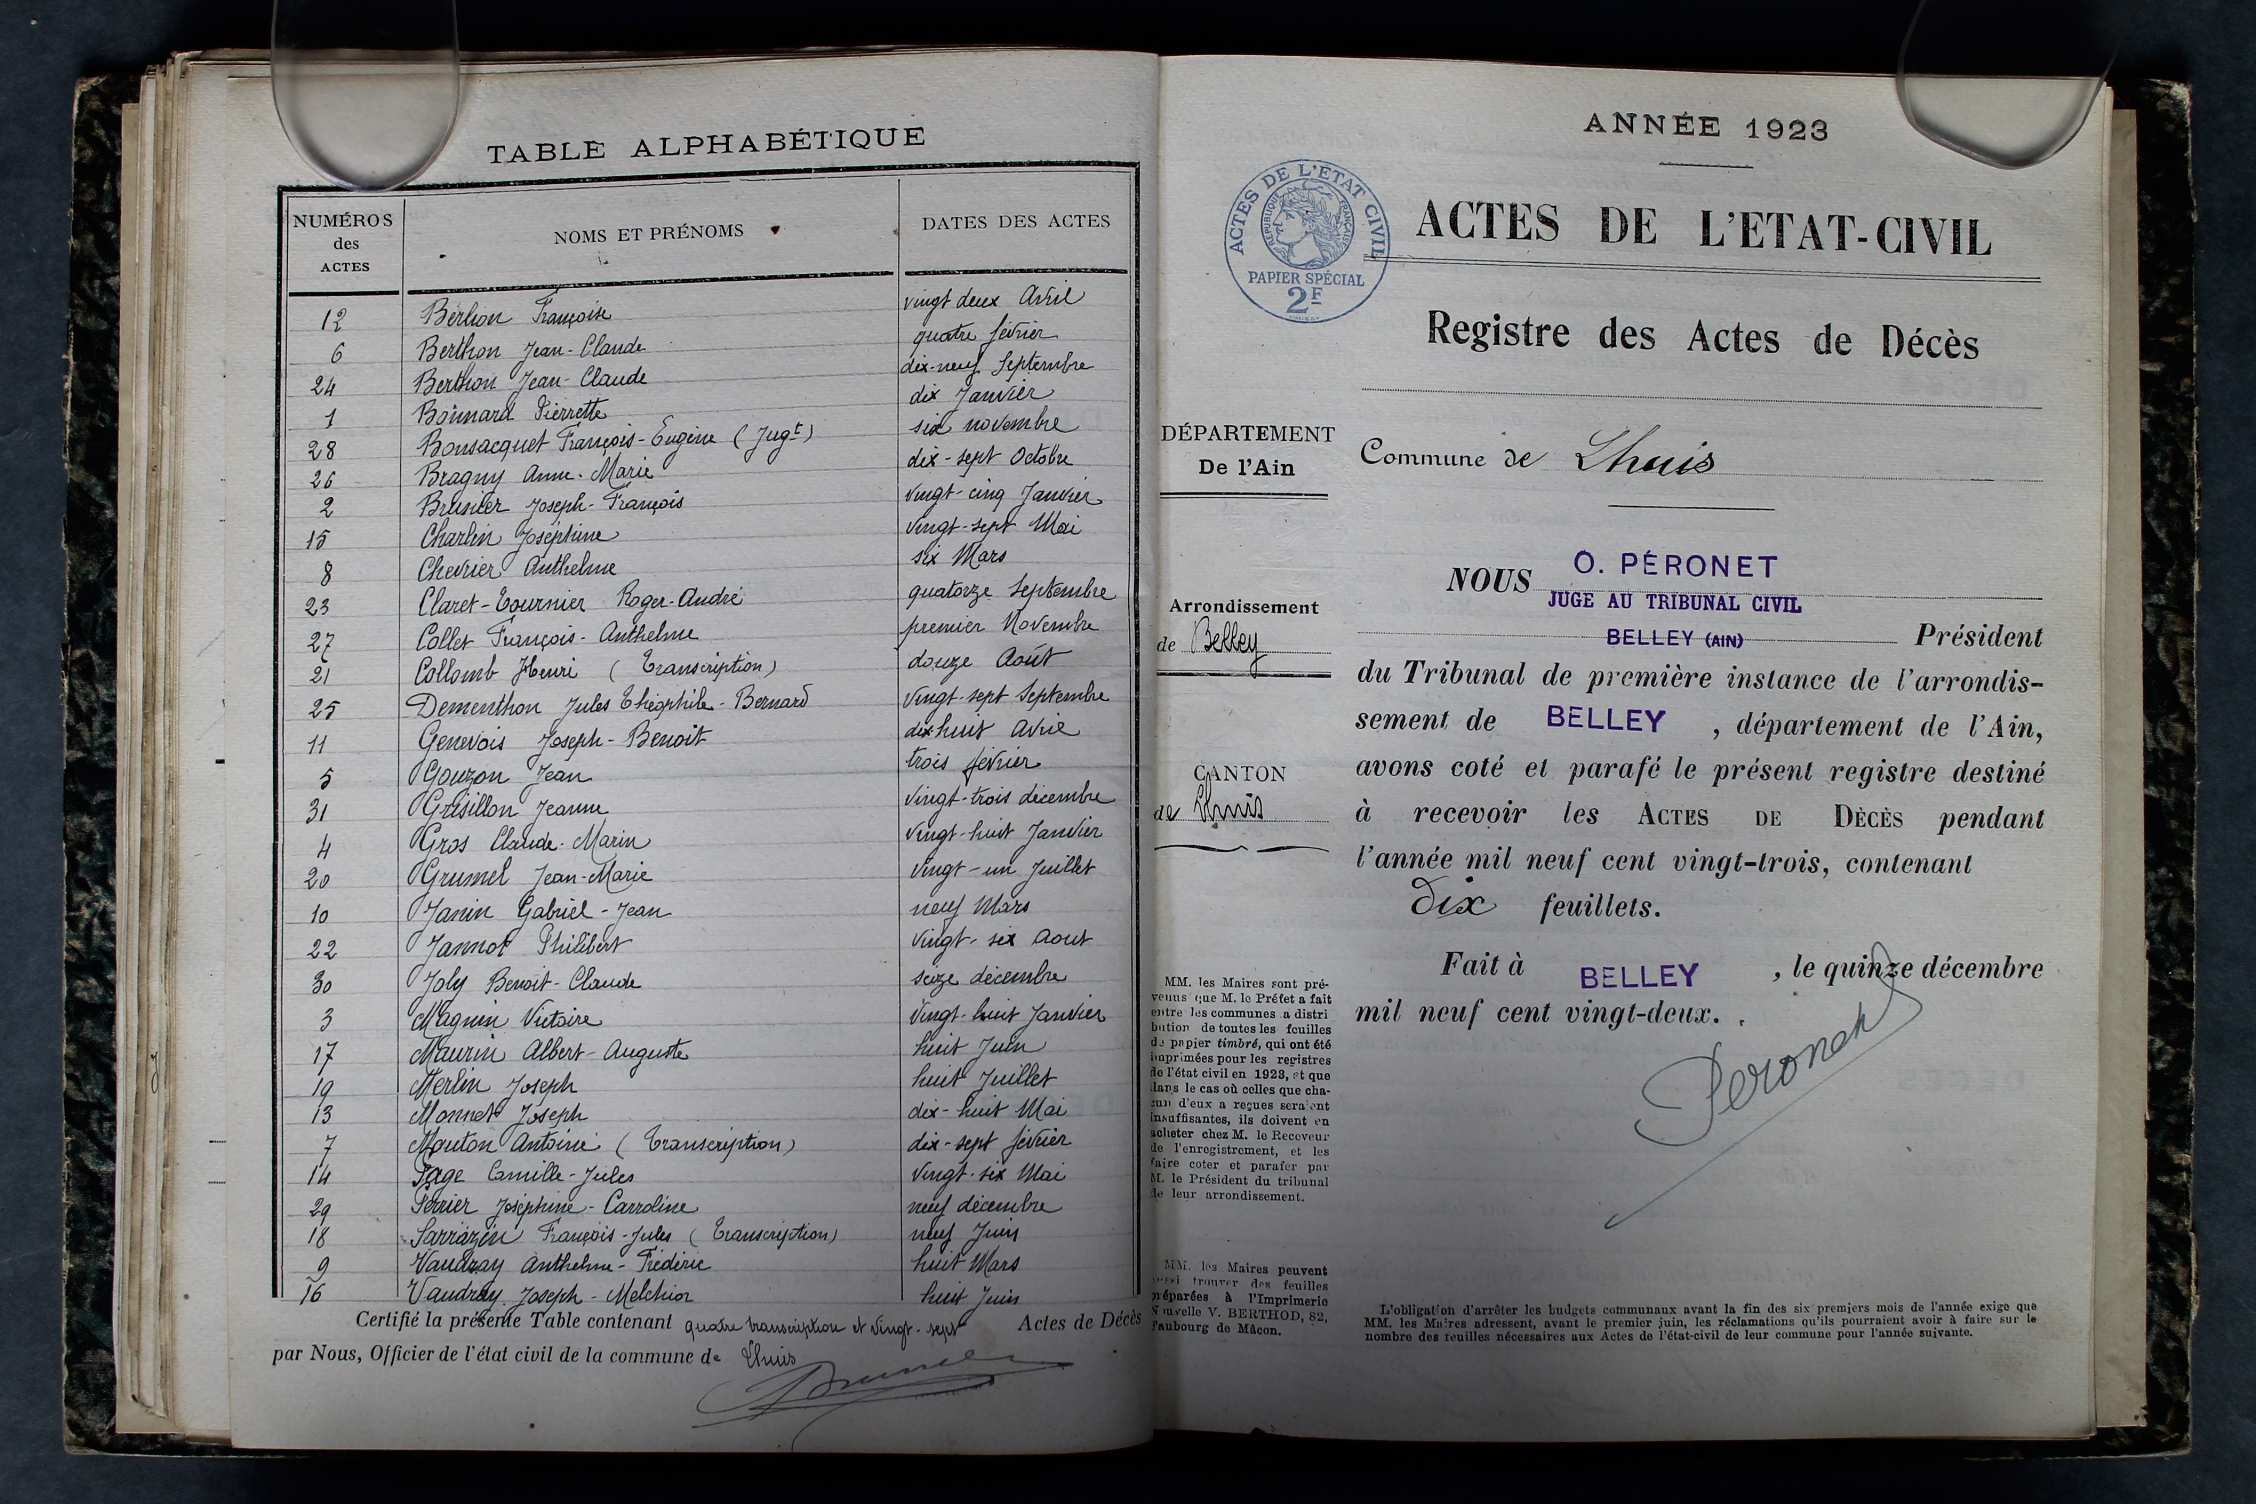 TABLE ALPHABÉTIQUE
NUMÉROS des ACTES NOMS ET PRÉNOMS DATES DES ACTES
12 Berlion Françoise vingt deux Avril
6 Berthon Jean-Claude quatre février
24 Berthon Jean-Claude dix-neuf Septembre
1 Bonnard Pierrette dix Janvier
28 Bonsacquet François-Eugène (Jugt) six novembre
26 Bragny Anne-Marie dix-sept Octobre
2 Brunier Joseph-François vingt-cinq Janvier
15 Charlin Joséphine vingt-sept Mai
8 Chevrier Anthelme six Mars
23 Claret-Tournier Roger-André quatorze Septembre
27 Collet François-Anthelme premier Novembre
21 Collomb Henri (Transcription) douze Août
25 Dementhon Jules Théophile-Bernard vingt-sept Septembre
11 Genevois Joseph-Benoit dix-huit Avril
5 Gouzon Jean trois février
31 Grisillon Jeanne vingt-trois décembre
4 Gros Claude-Marin vingt-huit Janvier
20 Grumel Jean-Marie vingt-un Juillet
10 Janin Gabriel-Jean neuf Mars
22 Jannot Philibert vingt-six Aout
30 Joly Benoit-Claude seize décembre
3 Magnin Victoire vingt-huit Janvier
17 Maurin Albert-Auguste huit Juin
19 Merlin Joseph huit Juillet
13 Monnet Joseph dix-huit Mai
7 Mouton Antoine (Transcription) dix-sept février
14 Page Camille-Jules vingt-six Mai
29 Perrier Joséphine-Carroline neuf décembre
18 Sarrazin François-Jules (Transcription) neuf Juin
9 Vaudray Anthelme-Frédéric huit Mars
16 Vaudray Joseph-Melchior huit Juin
Certifié la présente Table contenant quatre transcription et vingt-sept Actes de Décès
par Nous, Officier de l'état civil de la commune de Lhuis
ANNÉE 1923
ACTES DE L'ETAT CIVIL
REPUBLIQUE FRANÇAISE
PAPIER SPÉCIAL
2F
ACTES DE L'ETAT-CIVIL
Registre des Actes de Décès
DÉPARTEMENT
De l'Ain
Commune de Lhuis
Arrondissement
de Belley
CANTON
de Lhuis
NOUS O. PÉRONET
JUGE AU TRIBUNAL CIVIL
BELLEY (AIN) Président
du Tribunal de première instance de l'arrondis-
sement de BELLEY, département de l'Ain,
avons coté et parafé le présent registre destiné
à recevoir les ACTES DE DÉCÈS pendant
l'année mil neuf cent vingt-trois, contenant
Dix feuillets.
Fait à BELLEY, le quinze décembre
mil neuf cent vingt-deux.
Peronet
MM. les Maires sont pré-
venus que M. le Préfet a fait
entre les communes a distri
bution de toutes les feuilles
de papier timbré, qui ont été
imprimées pour les registres
de l'état civil en 1923, et que
dans le cas où celles que cha-
cun d'eux a reçues seraient
insuffisantes, ils doivent en
acheter chez M. le Receveur
de l'enregistrement, et les
faire coter et parafer par
M. le Président du tribunal
de leur arrondissement.
MM. les Maires peuvent
aussi trouver des feuilles
préparées à l'Imprimerie
Nouvelle V. BERTHOD, 82,
Faubourg de Mâcon.
L'obligation d'arrêter les budgets communaux avant la fin des six premiers mois de l'année exige que
MM. les Maires adressent, avant le premier juin, les réclamations qu'ils pourraient avoir à faire sur le
nombre des feuilles nécessaires aux Actes de l'état-civil de leur commune pour l'année suivante.